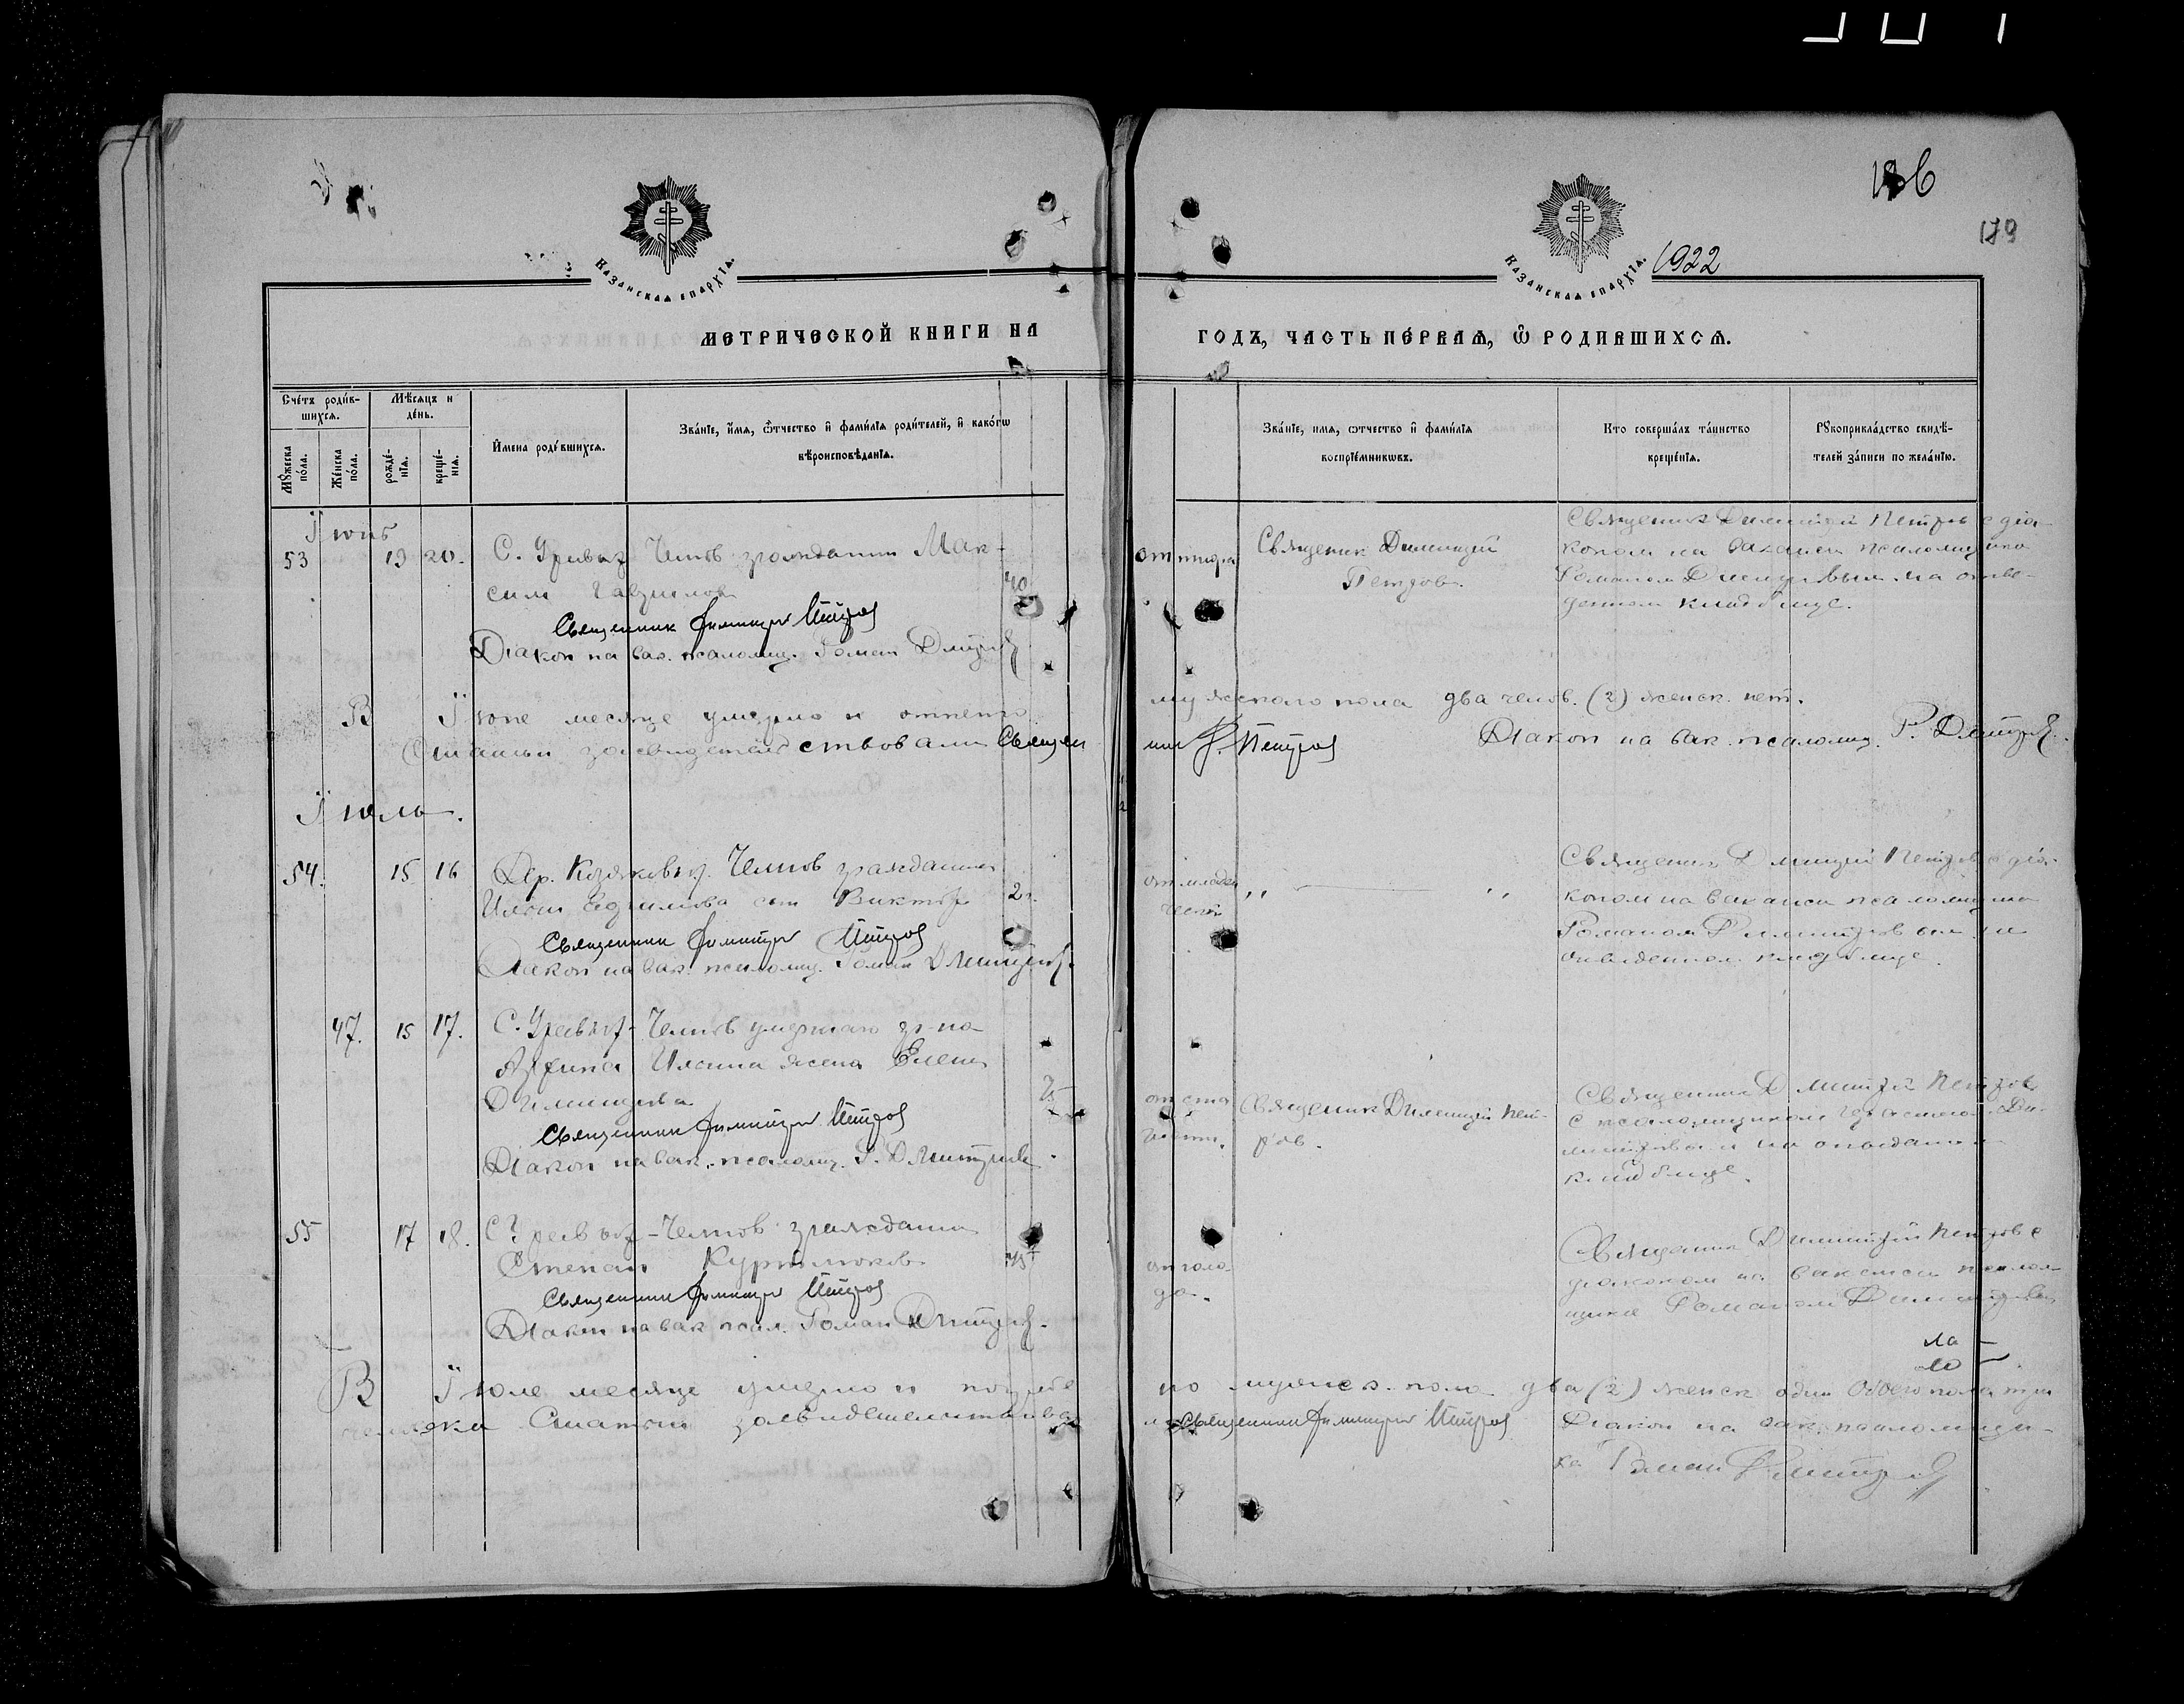 186
179
КАЗАНСКАЯ ЕПАРХІЯ.
КАЗАНСКАЯ ЕПАРХІЯ.
1922
МЕТРИЧЕСКОЙ КНИГИ НА
ГОДЪ, ЧАСТЬ ПЕ́РВАЯ, Ѽ РОДИВШИХСЯ.
Сче́тъ роди́в-
шихся.
Мѣ́сяцъ и
де́нь.
Мꙋ́жеска
по́ла.
Же́нска
по́ла.
рожде́-
нїя.
креще́-
нїя.
И́мена роди́вшихся.
Зва́нїе, и́мя, ѻ҆́тчество и҆ фами́лїя роди́телей, и҆ како́гѡ
вѣроисповѣ́данїя.
Зва́нїе, имя, ѻтчество и҆ фами́лїя
воспрїе́мникѡвъ.
Кто соверша́лъ та́инство
креще́нїя.
Рꙋкоприкла́дство свидѣ́-
телей за́писи по жела́нїю.
Їюнь
53 19 20. С. гражданин Мак-
сим Гаврилов
Священник Димитрий Петров
Діакон на вак. псаломщ. Роман Дмитриев
от тифа Священик Димитрий
Петров.
Священик Димитрий Петров с діа-
коном на вакансии псаломщика
Романом на отве-
денном кладбище.
В Їюне месяце умерло и отпето
мужского пола два челов. (2) женск. нет.
Статьи засвидетельствовали Священ
ник Д. Петров Діакон на вак. псаломщ. Р. Дмитриев.
Їюль.
54. 15 16 Дер. гражданина
сын Виктор 2 г.
Священник Димитрий Петров
Діакон на вак. псаломщ. Роман Дмитриев.
от младен
чест „ — „
Священик Дмитрий Петров с діа-
коном на вакансии псаломщика
Романом Димитриевым на
отведенном кладбище.
47. 15 17. С. умершаго гр-на
Ильина жена Елена
Димитриева 75
Священник Димитрий Петров
Діакон на вак. псаломщ. Р. Дмитриев.
от ста
Священик Димитрий Пет-
ров.
Священник Дмитрий Петров
с псаломщиком Ди-
митриевым на
кладбище.
55 17 18. С. гражданин
Степан
Священник Димитрий Петров
Діакон на вак. псал. Роман Дмитриев.
от голо-
да.
Священник Димитрий Петров с
діаконом на вакансии псалом-
щика Романом
ла —
ло —
В Їюле месяце умерло и погребе
но мужск. пола два (2) женск один обоего пола три
человека Статьи засвидетельствова
ли Священник Димитрий Петров
Діакон на вак. псаломщи-
ка Роман Дмитриев